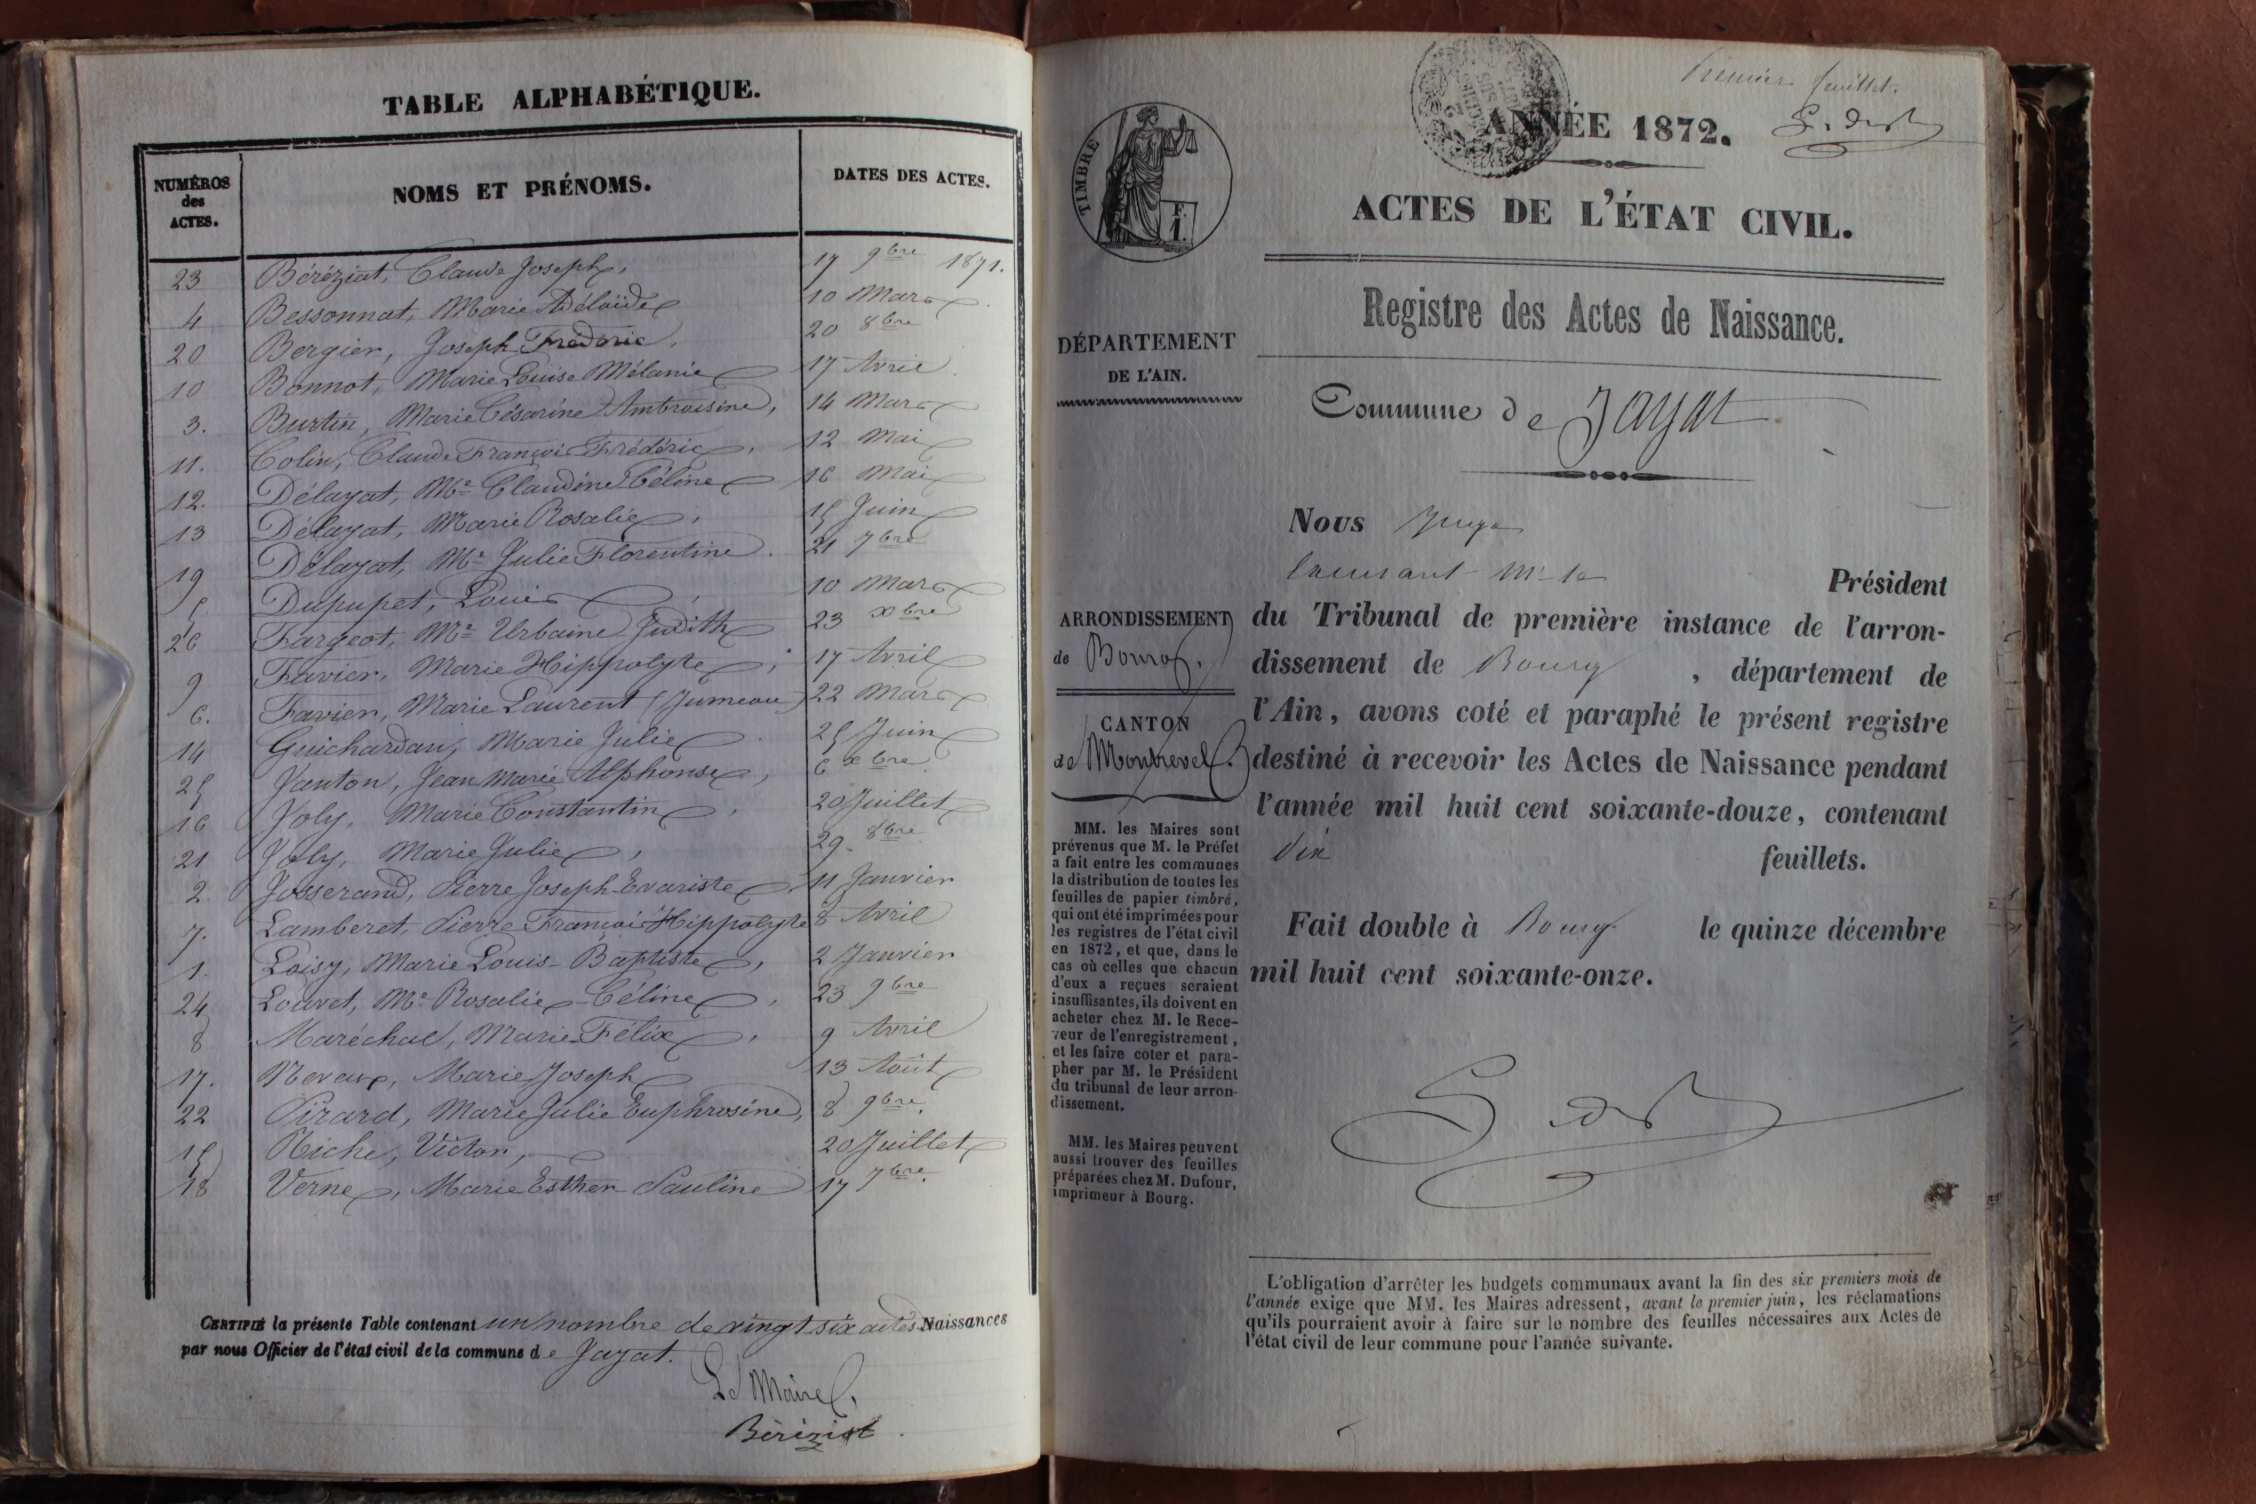 TABLE ALPHABÉTIQUE.
NUMÉROS
des
ACTES.
NOMS ET PRÉNOMS.
DATES DES ACTES.
23 Béréziat, Claude Joseph, 17 9bre 1871.
4 Bessonnat, Marie Adélaïde 10 Mars
20 Bergier, Joseph Frédéric, 20 8bre
10 Bonnot, Marie Louise Mélanie 17 Avril
3. Burtin, Marie Césarine Ambroisine, 14 Mars
11. Colin, Claude François Frédéric, 12 Mai
12. Délayat, Mie Claudine Céline 16 Mai
13 Délayat, Marie Rosalie, 15 Juin
19 Délayat, Mie Julie Florentine. 21 7bre
5 Dupupet, Louis, 10 Mars
26 Fargeot, Mie Urbaine Judith 23 xbre
9 Favier, Marie Hippolyte, 17 Avril
6. Favier, Marie Laurent (Jumeau) 22 Mars
14 Guichardan, Marie Julie 25 Juin
25 Janton, Jean Marie Alphonse, 6 xbre
16 Joly, Marie Constantin, 20 Juillet
21 Joly, Marie Julie, 29. 8bre
2. Josserand, Pierre Joseph Evariste 11 Janvier
7. Lamberet, Pierre François Hippolyte 8 Avril
1. Loisy, Marie Louis-Baptiste, 2 Janvier
24 Louvet, Mie Rosalie Céline, 23 9bre
8 Maréchal, Marie Félix, 9 Avril
17. Neveux, Marie Joseph 13 Août
22 Pirard, Marie Julie Euphrosine, 8 9bre.
15 Riche, Victor, 20 Juillet
18 Verne, Marie Esther Pauline 17 7bre.
CERTIFIÉ la présente Table contenant un nombre de vingt six actes Naissances
par nous Officier de l'état civil de la commune de Jayat.
Le Maire,
Béréziat.
Premier feuillet.
TIMBRE
F.
1.
ANNÉE 1872.
ACTES DE L'ÉTAT CIVIL.
Registre des Actes de Naissance.
DÉPARTEMENT
DE L'AIN.
Commune de Jayat
ARRONDISSEMENT
de Bourg.
CANTON
de Montrevel.
Nous Juge
Président
du Tribunal de première instance de l'arron-
dissement de Bourg, département de
l'Ain, avons coté et paraphé le présent registre
destiné à recevoir les Actes de Naissance pendant
l'année mil huit cent soixante-douze, contenant
dix feuillets.
Fait double à Bourg le quinze décembre
mil huit cent soixante-onze.
MM. les Maires sont
prévenus que M. le Préfet
a fait entre les communes
la distribution de toutes les
feuilles de papier timbré,
qui ont été imprimées pour
les registres de l'état civil
en 1872, et que, dans le
cas où celles que chacun
d'eux a reçues seraient
insuffisantes, ils doivent en
acheter chez M. le Rece-
veur de l'enregistrement,
et les faire coter et para-
pher par M. le Président
du tribunal de leur arron-
dissement.
MM. les Maires peuvent
aussi trouver des feuilles
préparées chez M. Dufour,
imprimeur à Bourg.
L'obligation d'arrêter les budgets communaux avant la fin des six premiers mois de
l'année exige que MM. les Maires adressent, avant le premier juin, les réclamations
qu'ils pourraient avoir à faire sur le nombre des feuilles nécessaires aux Actes de
l'état civil de leur commune pour l'année suivante.